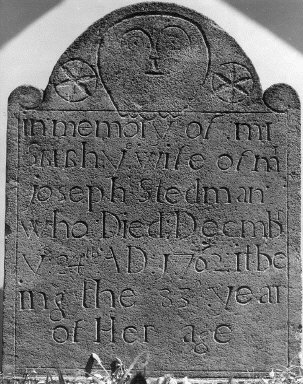 In memory of mr
Sarah yᵉ wife of mr
Joseph Stedman
who Died: Decmb
yᵉ 24th AD: 1762 it be
ing the 33d year
of Her age